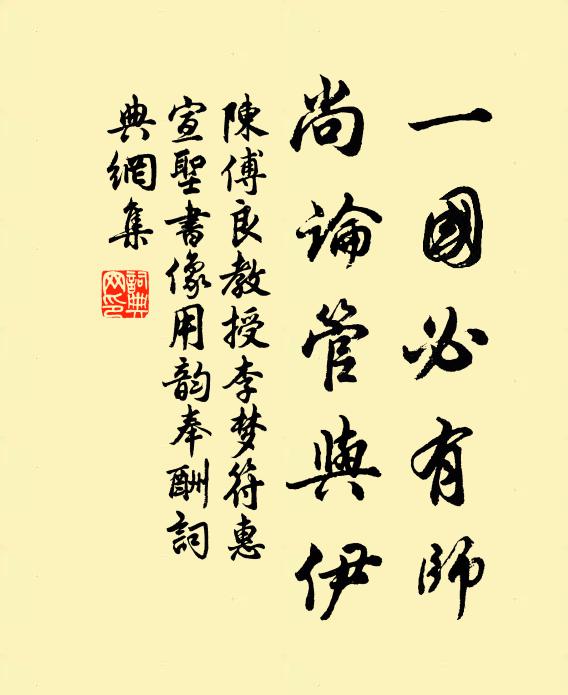 一國必有師
尚論管與伊
陳傅良教授李梦符惠
宣聖書像用韵奉酬詞
典網集
詞典
网印